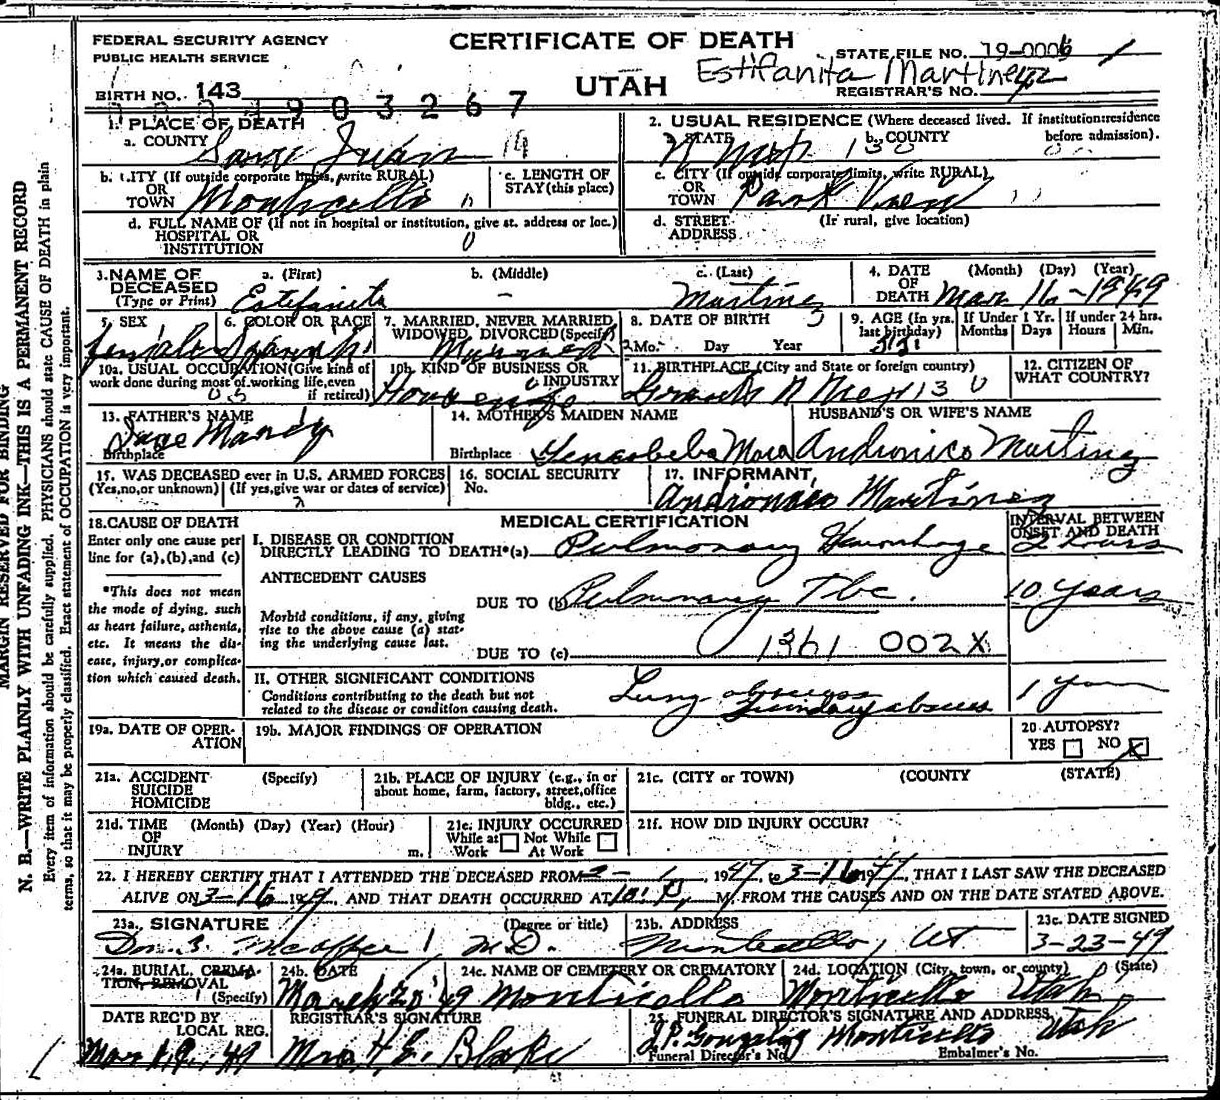 FEDERAL SECURITY AGENCY
PUBLIC HEALTH SERVICE
CERTIFICATE OF DEATH
STATE FILE NO. 19-0006
UTAH
Estifanita Martinez
REGISTRAR'S NO.
BIRTH NO. 143
1903267
1. PLACE OF DEATH
a. COUNTY San Juan 19
2. USUAL RESIDENCE (Where deceased lived. If institution: residence before admission).
a. STATE N Mex 130 b. COUNTY
b. CITY (If outside corporate limits, write RURAL) OR TOWN Monticello
c. LENGTH OF STAY (this place)
c. CITY (If outside corporate limits, write RURAL) OR TOWN Park View
d. FULL NAME OF (If not in hospital or institution, give st. address or loc.) HOSPITAL OR INSTITUTION 0
d. STREET ADDRESS (If rural, give location)
3. NAME OF DECEASED (Type or Print)
a. (First) Estefanita b. (Middle) - c. (Last) Martinez
4. DATE OF DEATH (Month) (Day) (Year) Mar 16-1949
5. SEX female
6. COLOR OR RACE Spanish
7. MARRIED, NEVER MARRIED WIDOWED, DIVORCED (Specify) Married
8. DATE OF BIRTH 3
Mo. Day Year
9. AGE (In yrs. last birthday)
If Under 1 Yr. Months Days
If under 24 hrs. Hours Min.
10a. USUAL OCCUPATION (Give kind of work done during most of working life, even if retired)
10b. KIND OF BUSINESS OR INDUSTRY
11. BIRTHPLACE (City and State or foreign country) Grants N Mex 130
12. CITIZEN OF WHAT COUNTRY?
13. FATHER'S NAME
Birthplace
14. MOTHER'S MAIDEN NAME
Birthplace
HUSBAND'S OR WIFE'S NAME
Andronico Martinez
15. WAS DECEASED ever in U.S. ARMED FORCES
(Yes, no, or unknown) (If yes, give war or dates of service)
16. SOCIAL SECURITY No.
17. INFORMANT
Andronico Martinez
18. CAUSE OF DEATH
Enter only one cause per line for (a), (b), and (c)
*This does not mean the mode of dying, such as heart failure, asthenia, etc. It means the disease, injury, or complication which caused death.
MEDICAL CERTIFICATION
INTERVAL BETWEEN ONSET AND DEATH
I. DISEASE OR CONDITION DIRECTLY LEADING TO DEATH*(a) Pulmonary Hemorrhage 2 hours
ANTECEDENT CAUSES
DUE TO (b) Pulmonary Tbc. 10 years
Morbid conditions, if any, giving rise to the above cause (a) stating the underlying cause last.
DUE TO (c) 1361 002X
II. OTHER SIGNIFICANT CONDITIONS
Conditions contributing to the death but not related to the disease or condition causing death.
Lung abscess 1 year
19a. DATE OF OPERATION
19b. MAJOR FINDINGS OF OPERATION
20. AUTOPSY?
YES NO X
21a. ACCIDENT SUICIDE HOMICIDE (Specify)
21b. PLACE OF INJURY (e.g., in or about home, farm, factory, street, office bldg., etc.)
21c. (CITY or TOWN) (COUNTY (STATE)
21d. TIME OF INJURY (Month) (Day) (Year) (Hour) m.
21e. INJURY OCCURRED
While at Work Not While At Work
21f. HOW DID INJURY OCCUR?
22. I HEREBY CERTIFY THAT I ATTENDED THE DECEASED FROM 2-1, 1947, to 3-16 19, THAT I LAST SAW THE DECEASED
ALIVE ON 3-16 1949, AND THAT DEATH OCCURRED AT 10: P. M. FROM THE CAUSES AND ON THE DATE STATED ABOVE.
23a. SIGNATURE (Degree or title) M.D.
23b. ADDRESS Monticello, UT
23c. DATE SIGNED 3-23-49
24a. BURIAL, CREMATION, REMOVAL (Specify)
24b. DATE March 20 '49
24c. NAME OF CEMETERY OR CREMATORY Monticello
24d. LOCATION (City, town, or county) (State) Monticello Utah
DATE REC'D BY LOCAL REG.
REGISTRAR'S SIGNATURE
Mrs. H. E. Blake
25. FUNERAL DIRECTOR'S SIGNATURE AND ADDRESS
Monticello Utah
Funeral Director's No. Embalmer's No.
MARGIN RESERVED FOR BINDING
N. B.—WRITE PLAINLY WITH UNFADING INK—THIS IS A PERMANENT RECORD
Every item of information should be carefully supplied. PHYSICIANS should state CAUSE OF DEATH in plain
terms, so that it may be properly classified. Exact statement of OCCUPATION is very important.